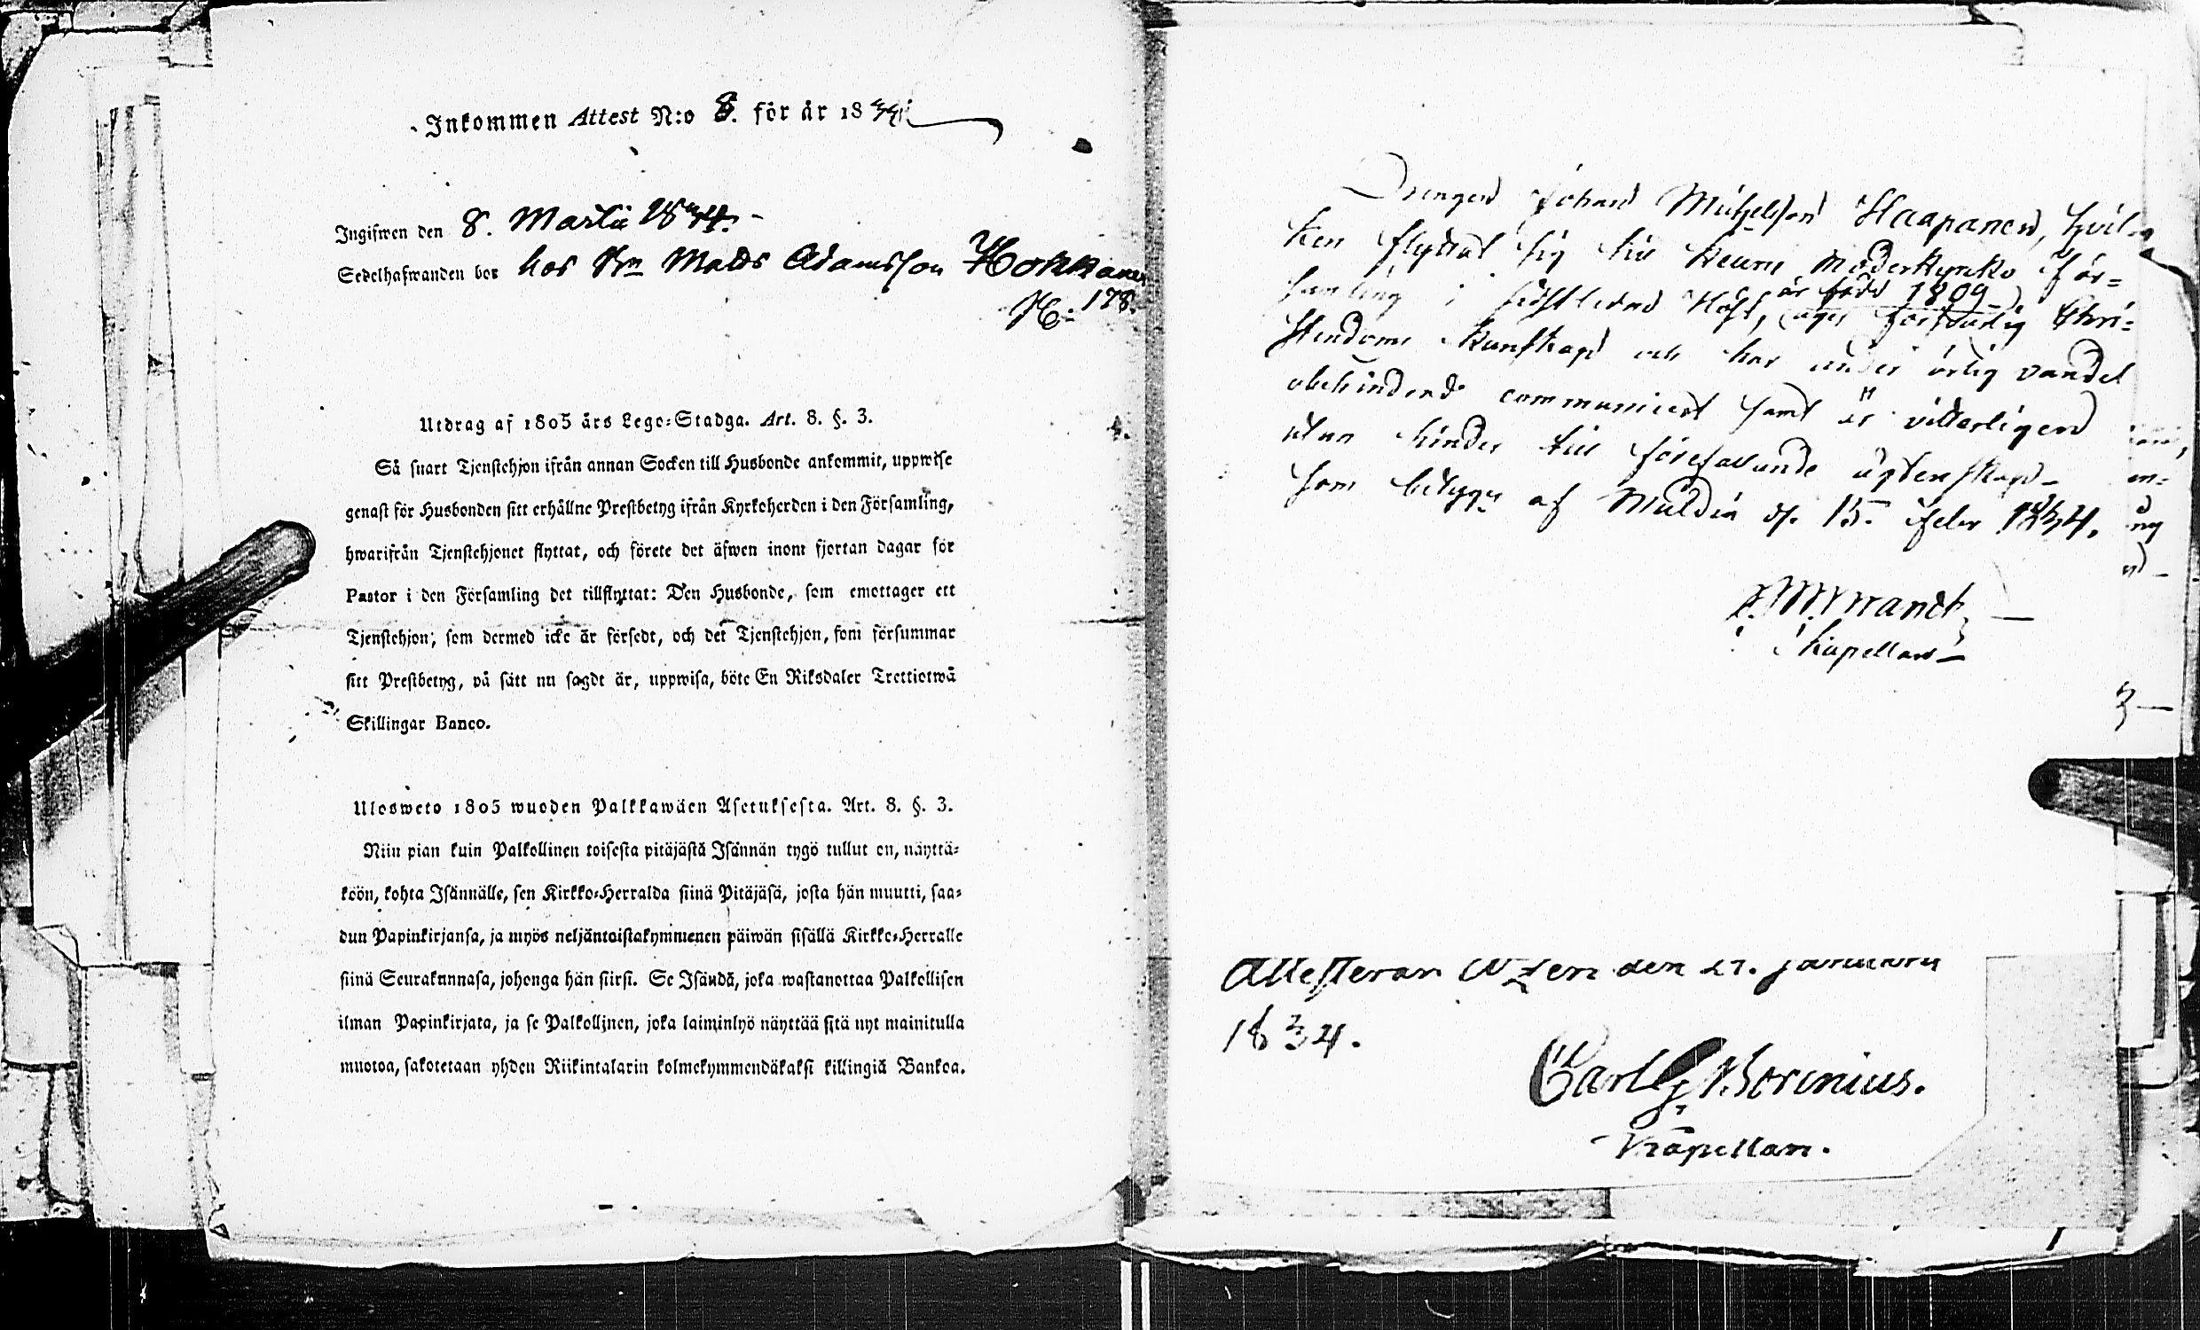 Inkommen Attest N:o 8. för år 1834
Ingifwen den 8. Martii 1834.
Sedelhafwanden bor hos Bn Matts Adamsson Hokkanen
N: 178.
Utdrag af 1805 års Lego-Stadga. Art. 8. §. 3.
Så snart Tjenstehjon ifrån annan Socken till Husbonde ankommit, uppwise
genast för Husbonden sitt erhållne Prestbetyg ifrån Kyrkoherden i den Församling,
hwarifrån Tjenstehjonet flyttat, och förete det äfwen inom fjortan dagar för
Pastor i den Församling det tillflyttat: Den Husbonde, som emottager ett
Tjenstehjon, som dermed icke är försedt, och det Tjenstehjon, som försummar
sitt Prestbetyg, på sätt nu sagdt är, uppwisa, böte En Riksdaler Trettiotwå
Skillingar Banco.
Ulosweto 1805 wuoden Palkkawäen Asetuksesta. Art. 8. §. 3.
Niin pian kuin Palkollinen toisesta pitäjästä Isännän tygö tullut on, näyttä-
köön, kohta Isännälle, sen Kirkko-Herralda siinä Pitäjäsä, josta hän muutti, saa-
dun Papinkirjansa, ja myös neljäntoistakymmenen päiwän sisällä Kirkko-Herralle
siinä Seurakunnasa, johonga hän siirsi. Se Isändä, joka wastanottaa Palkollisen
ilman Papinkirjata, ja se Palkollinen, joka laiminlyö näyttää sitä nyt mainitulla
muotoa, sakotetaan yhden Riikintalarin kolmekymmendäkaksi killingiä Bankoa.
Drengen Johan Michelsson Haapanen, hvil-
ken flyttat sig till Keuru Moderkyrko För-
samling i sistledne Höst, är född 1809, äger försvarlig Chri-
stendoms kunskap och har under ärlig vandel
obehindrad communicerat samt är vitterligen
utan hinder till förefallande ägtenskap
som betygas af Muldia d. 15. Febr 1834.
Kapellan
Attesteras den 27. Januarii
1834.
Carl G. Borenius.
Kapellan.